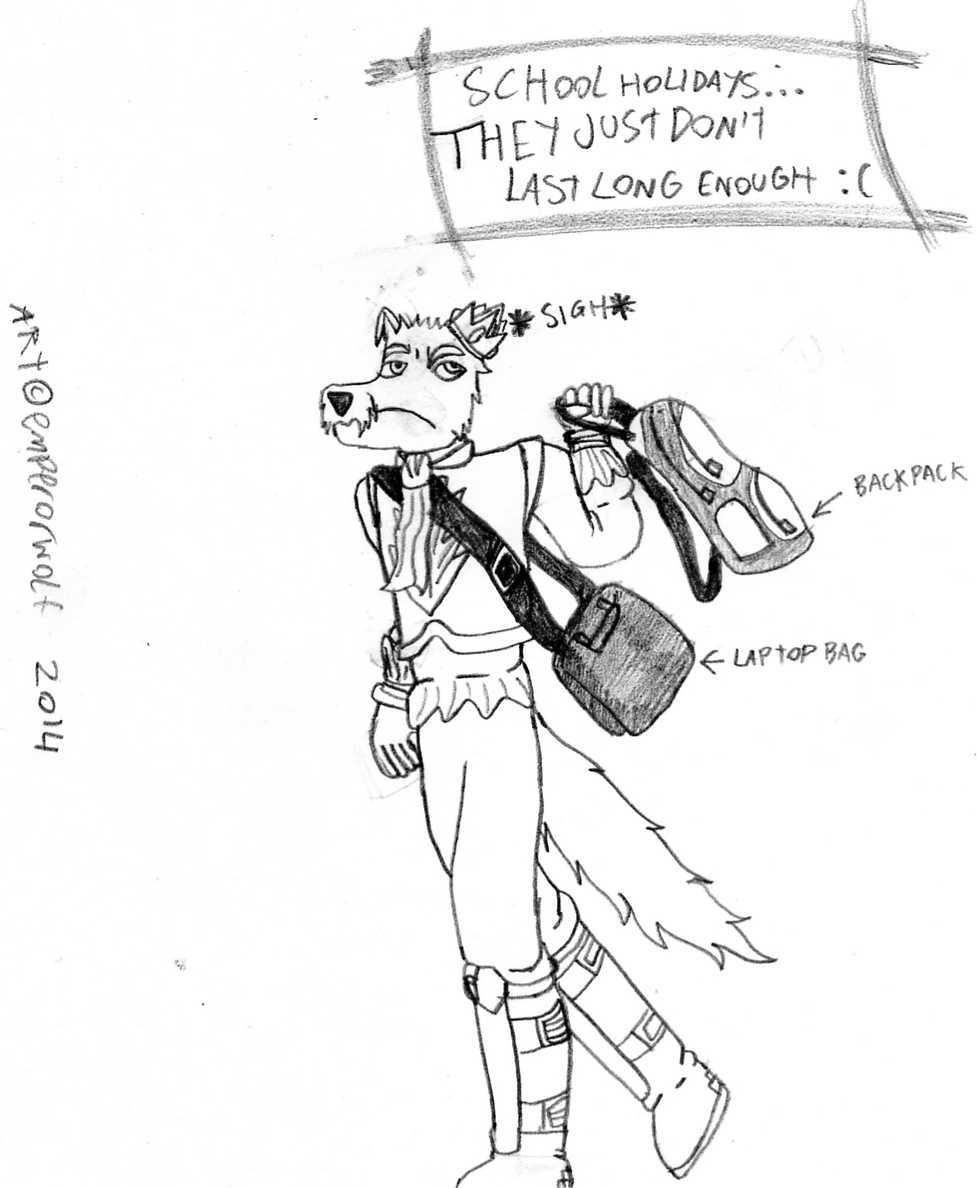 SCHOOL HOLIDAYS...
THEY JUST DON'T
LAST LONG ENOUGH :(
*SIGH*
BACKPACK
LAPTOP BAG
ART©emperorwolf 2014